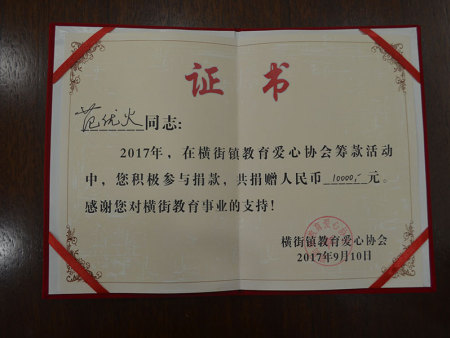 证书
范优火同志:
2017年，在横街镇教育爱心协会筹款活动
中，您积极参与捐款，共捐赠人民币 10000,- 元。
感谢您对横街教育事业的支持!
横街镇教育爱心协会
2017年9月10日